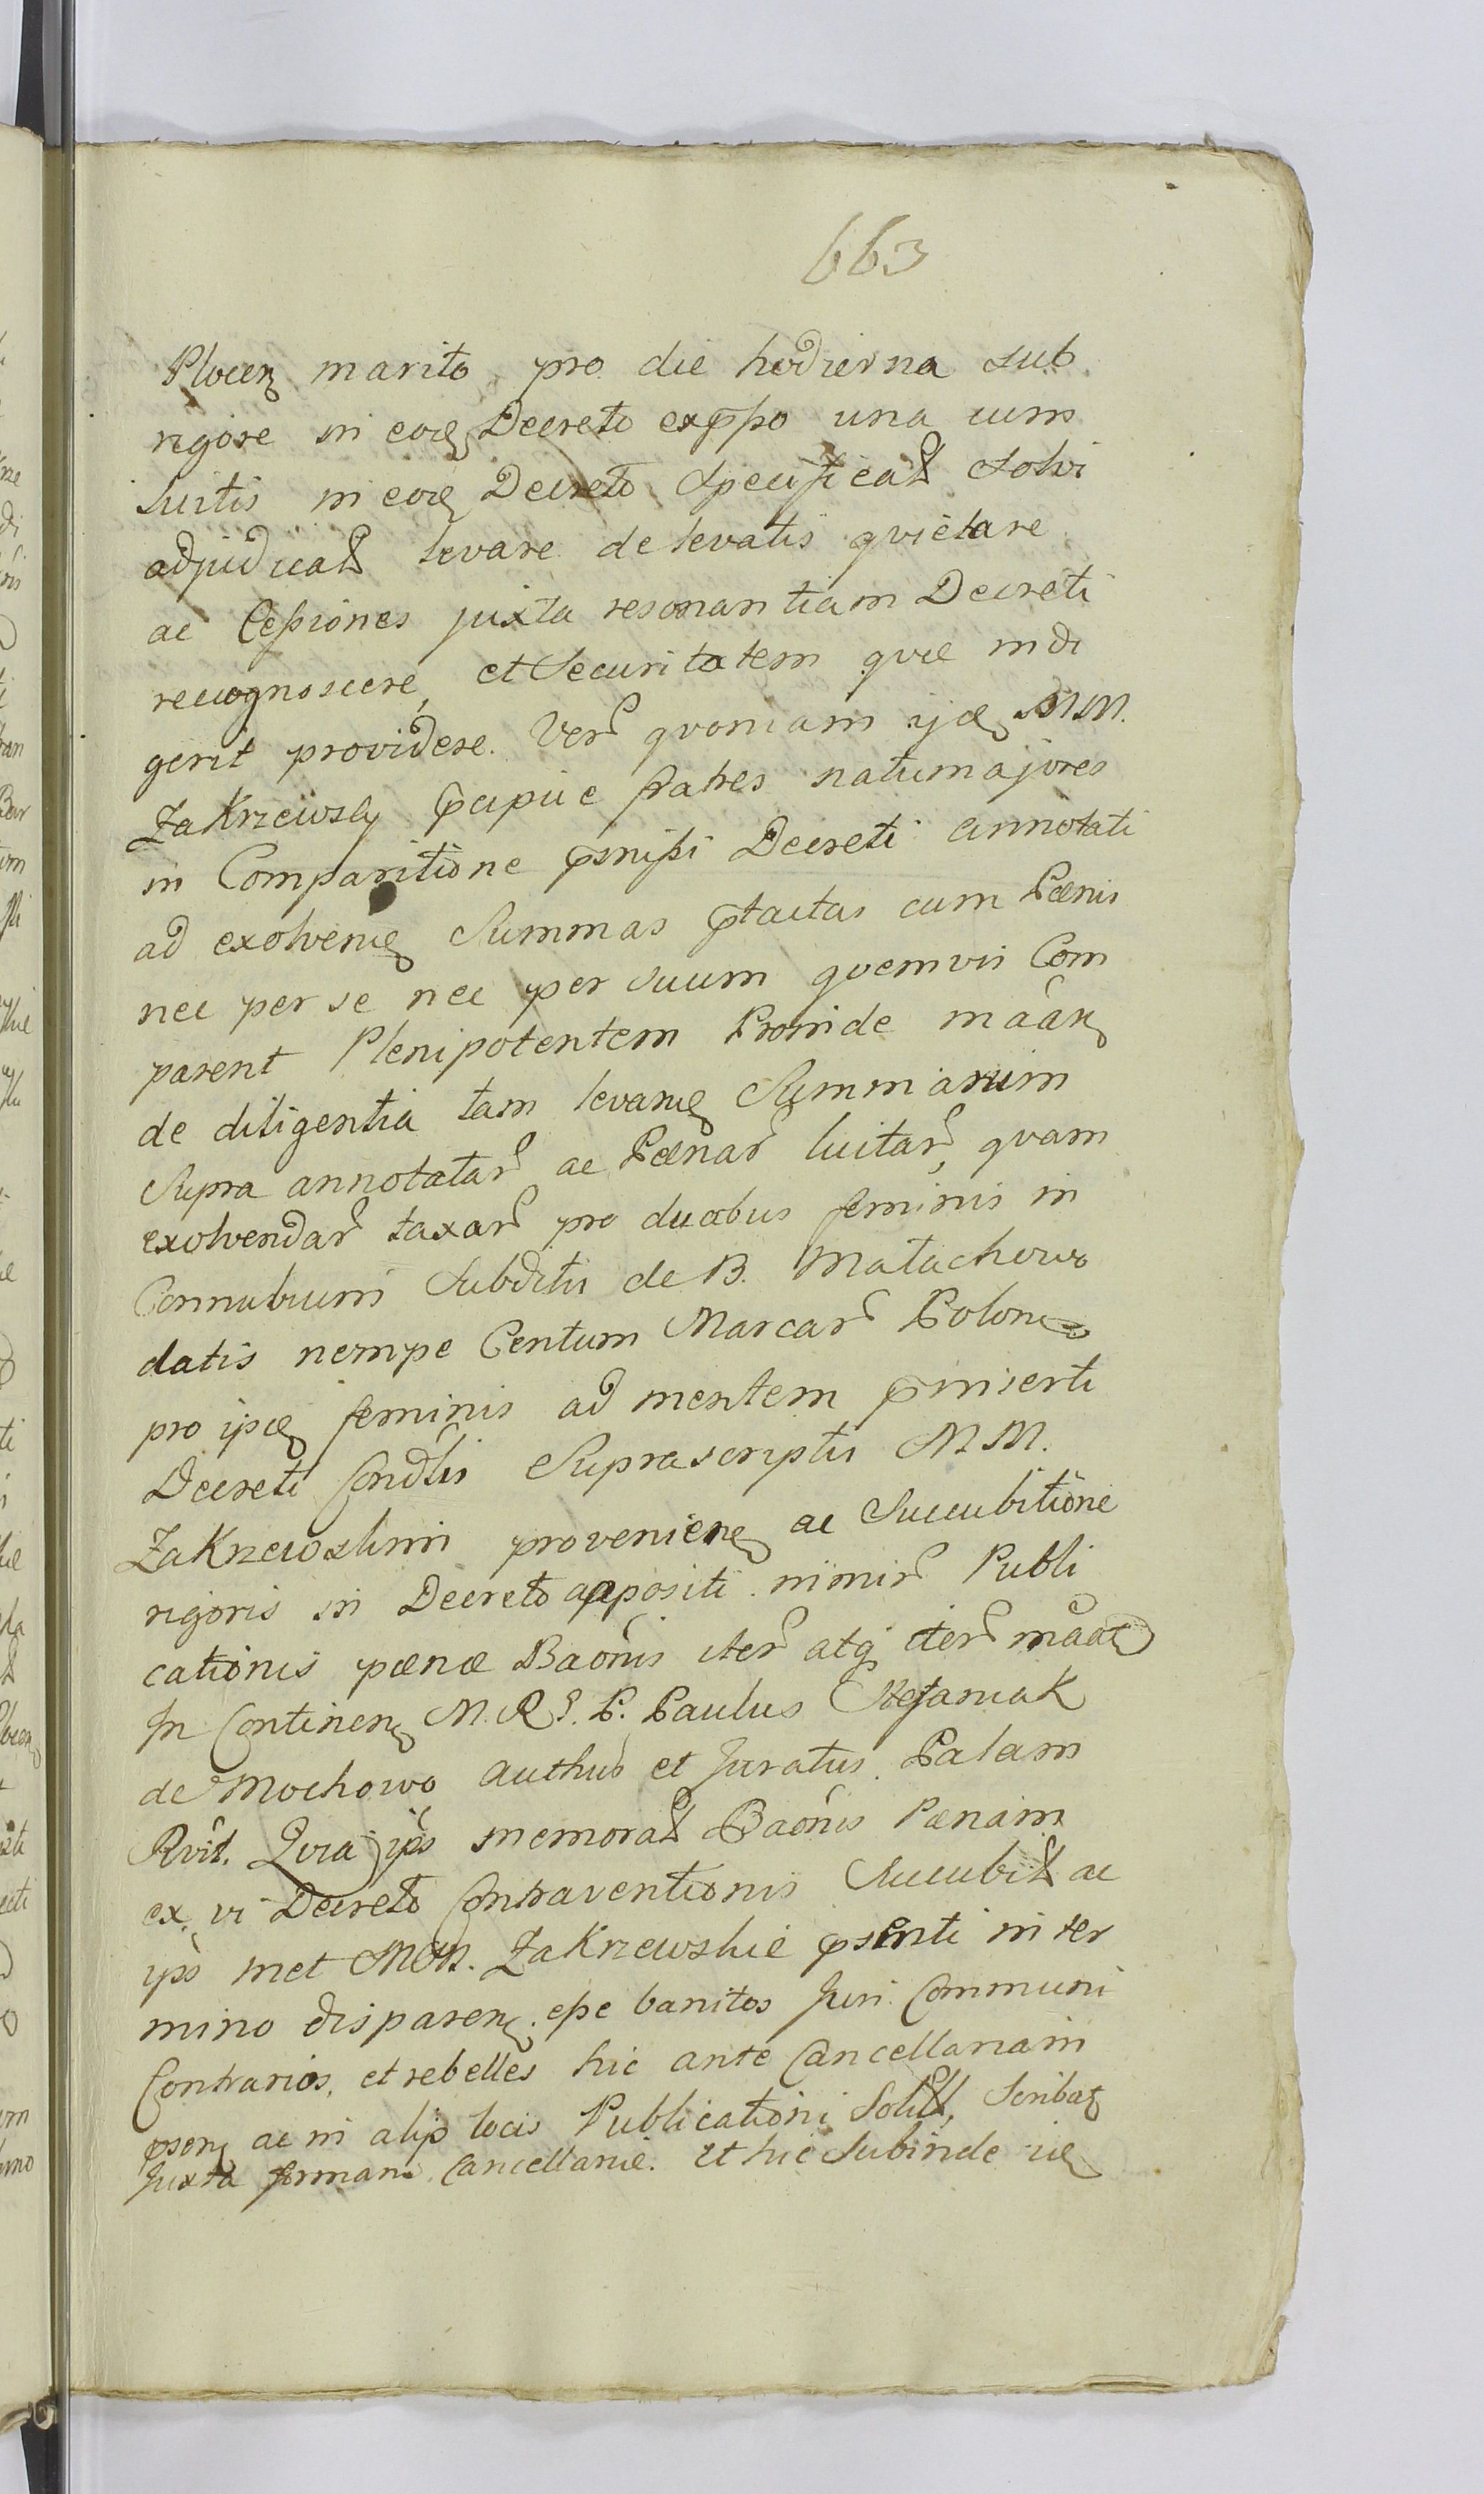 663
Plocen marito pro die hodierna sub
rigore in eod Decreto expsso una cum
luitis in eod Decreto Specificat Solvi
adjudicat levare de levatis qvietare
ac Cessiones juxta resonantiam Decreti
recognoscere, et Securitatem qvæ indi
gerit providere. Ver qvoniam ijd MM.
ZaKrzewscy pcipue fratres natu majores
in Comparitione psmissi Decreti annotati
ad exolvend Summas ptactas cum Pænis
nec per se nec per suum qvemvis Com
parent Plenipotentem Proinde
de diligentia tam levand Summarum
Supra annotatar ac Pænar luitar, qvam
exolvendar taxar pro duabus feminis in
Connubium Subditis de B. Matachowo
datis nempe Centum Marcar Polon
pro ipsis feminis ad mentem pinserti
Decreti Condlis Suprascriptis MM.
ZaKrzewskim provenien ac Succubitione
rigoris in Decreto appositi nimir Publi
cationis pænæ Baonis iter atq iter
In Continen M. R. P. Paulus StefaniaK
de Mochowo authus et Juratus Palam
Rvit. Qvia ips memorat Baonis Pænam
ex vi Decreto Contraventionis Succubit ac
ips met MM. ZaKrzewskie psenti in ter
mino disparen esse banitos Juri Communi
Contrarios, et rebelles hic ante Cancellariam
psen ac in alijs locis Publicationi Solit, Scribat
Juxta formam Cancellariæ. Et hic Subinde